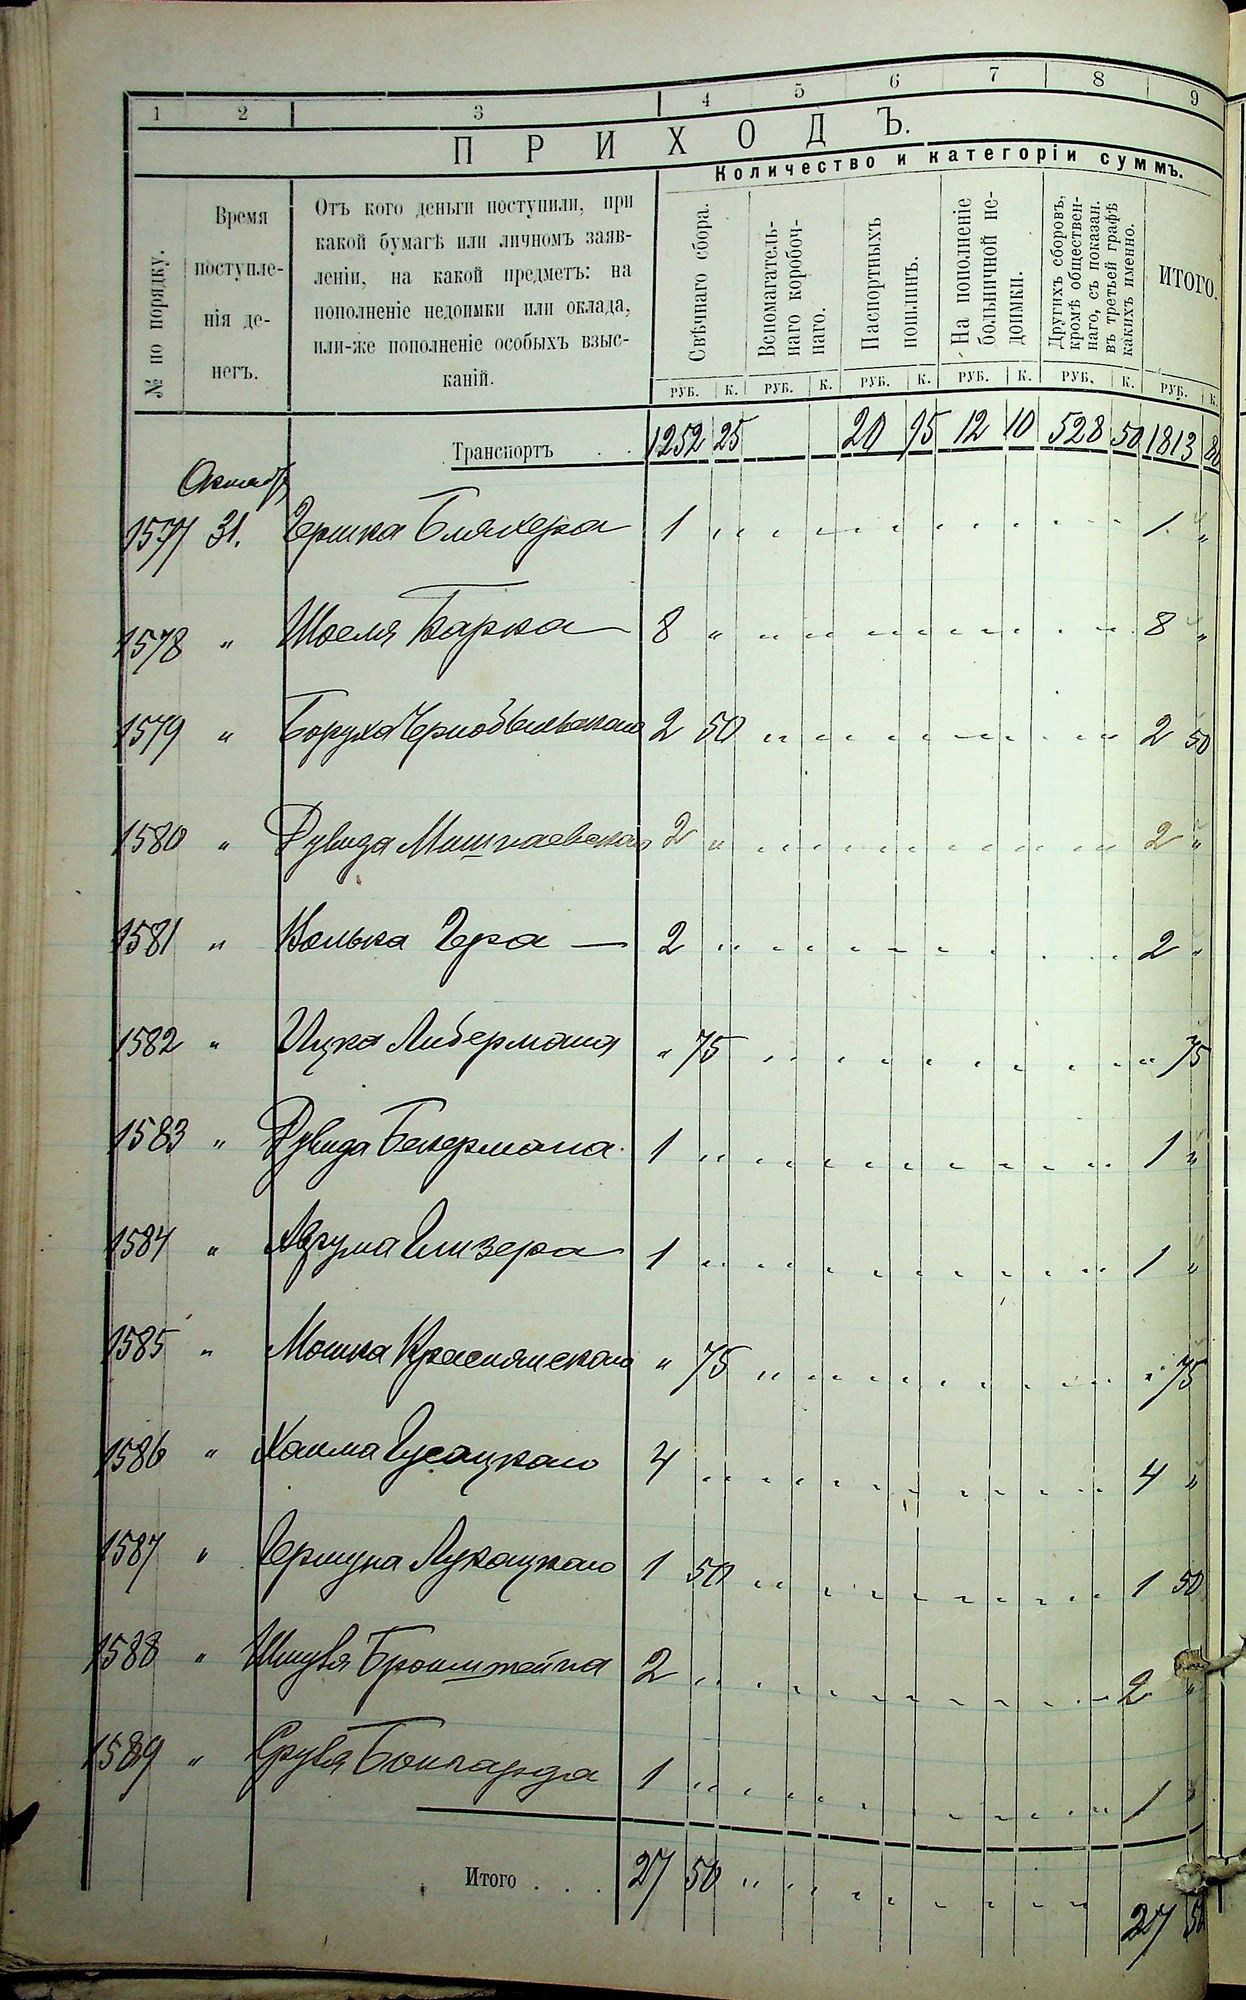 1 2 3 4 5 6 7 8 9
ПРИХОДЪ.
Количество и категоріи суммъ.
№ по порядку.
Время поступле-
нія де-
негъ.
Отъ кого деньги поступили, при
какой бумагѣ или личномъ заяв-
леніи, на какой предметъ: на
пополненіе недоимки или оклада,
или-же пополненіе особыхъ взыс-
каній.
Свѣчнаго сбора.
Вспомагатель-
наго коробоч-
наго.
Паспортныхъ
пошлинъ.
На пополненіе
больничной не-
доимки.
Другихъ сборовъ,
кромѣ обществен-
наго, съ показан.
въ третьей графѣ
какихъ именно.
ИТОГО.
РУБ. К. РУБ. К. РУБ. К. РУБ. К. РУБ. К. РУБ. К.
Транспортъ . . 1252 25 20 95 12 10 528 50 1813 80
1577 31. Гершка Бляхера 1 " 1 "
1578 " Шоеля Барка 8 " 8 "
1579 " Боруха Чернобыльскаго 2 50 2 50
1580 " Дувида 2 " 2 "
1581 " Волька Гера — 2 " 2 "
1582 " Ицка Либермана " 75 " 75
1583 " Дувида Бекермана 1 " 1 "
1584 " Глизера 1 " 1 "
1585 " Мошка Краснянскаго " 75 " 75
1586 " Хаима Гусацкаго 4 " 4 "
1587 " Гершуна Лукацкаго 1 50 1 50
1588 " Шмуля Бронштейна 2 " 2 "
1589 " Сруля Бонгарда 1 " 1 "
Итого . . . 27 50 27 50